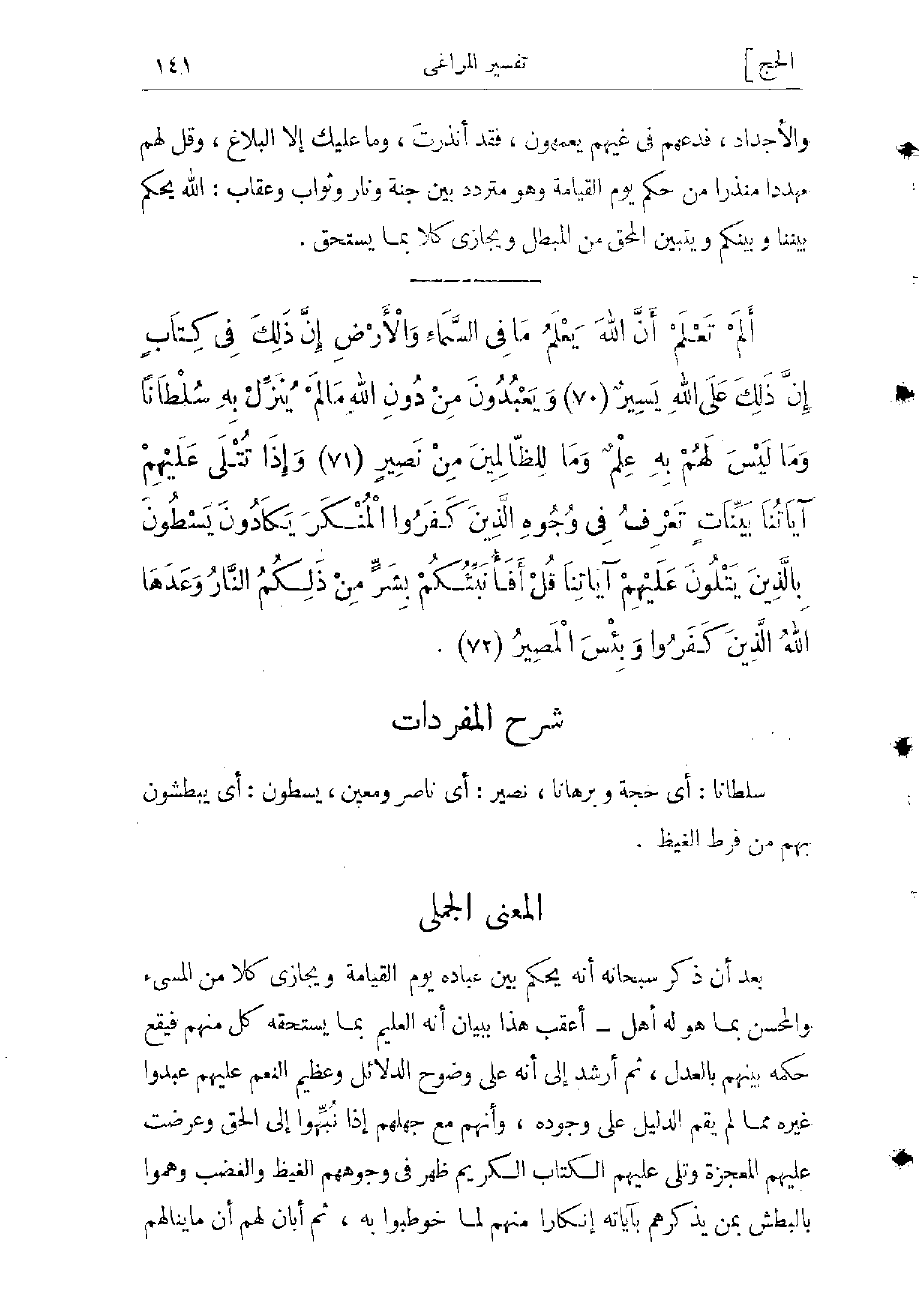 الحج] تفسير المراغى ١٤١
والأجداد ، فدعهم فى غيهم يعمهون ، فقد أنذرتَ ، وما عليك إلا البلاغ ، وقل لهم
مهددا منذرا من حكم يوم القيامة وهو متردد بين جنة ونار وثواب وعقاب : الله يحكم
بيننا وبينكم ويتبين المحق من المبطل ويجازى كلا بما يستحق .
أَلَمْ تَعْلَمْ أَنَّ اللهَ يَعْلَمُ مَا فِى السَّمَاءِ وَالْأَرْضِ إِنَّ ذَلِكَ فِى كِتَابٍ
إِنَّ ذَلِكَ عَلَى اللهِ يَسِيرٌ (٧٠) وَيَعْبُدُونَ مِنْ دُونِ اللهِ مَالَمْ يُنَزِّلْ بِهِ سُلْطَانًا
وَمَا لَيْسَ لَهُمْ بِهِ عِلْمٌ وَمَا لِلظَّالِمِينَ مِنْ نَصِيرٍ (٧١) وَإِذَا تُتْلَى عَلَيْهِمْ
آيَاتُنَا بَيِّنَاتٍ تَعْرِفُ فِى وُجُوهِ الَّذِينَ كَفَرُوا الْمُنْكَرَ يَكَادُونَ يَسْطُونَ
بِالَّذِينَ يَتْلُونَ عَلَيْهِمْ آيَاتِنَا قُلْ أَفَأُنَبِّئُكُمْ بِشَرٍّ مِنْ ذَلِكُمُ النَّارُ وَعَدَهَا
اللهُ الَّذِينَ كَفَرُوا وَبِئْسَ الْمَصِيرُ (٧٢) .
شرح المفردات
سلطانا : أى حجة وبرهانا ، نصير : أى ناصر ومعين ، يسطون : أى يبطشون
بهم من فرط الغيظ .
المعنى الجملى
بعد أن ذكر سبحانه أنه يحكم بين عباده يوم القيامة ويجازى كلا من المسىء
والمحسن بما هو له أهل – أعقب هذا ببيان أنه العليم بما يستحقه كل منهم فيقع
حكمه بينهم بالعدل ، ثم أرشد إلى أنه على وضوح الدلائل وعظيم النعم عليهم عبدوا
غيره مما لم يقم الدليل على وجوده ، وأنهم مع جهلهم إذا نُبِّهوا إلى الحق وعرضت
عليهم المعجزة وتلى عليهم الكتاب الكريم ظهر فى وجوههم الغيظ والغضب وهموا
بالبطش بمن يذكرهم بآياته إنكارا منهم لما خوطبوا به ، ثم أبان لهم أن ماينالهم